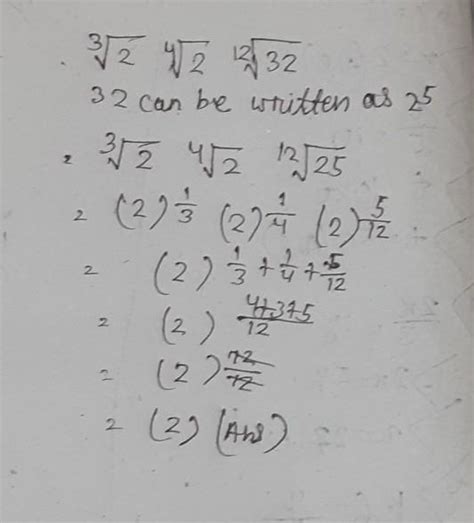 . ∛2 ∜2 ¹²√32
32 can be written as 2⁵
= ∛2 ∜2 ¹²√25
= (2) 1/3 (2) 1/4 (2) 5/12
= (2) 1/3 + 1/4 + 5/12
= (2) 4+3+5/12
= (2) 12/12
= (2) (Ans)